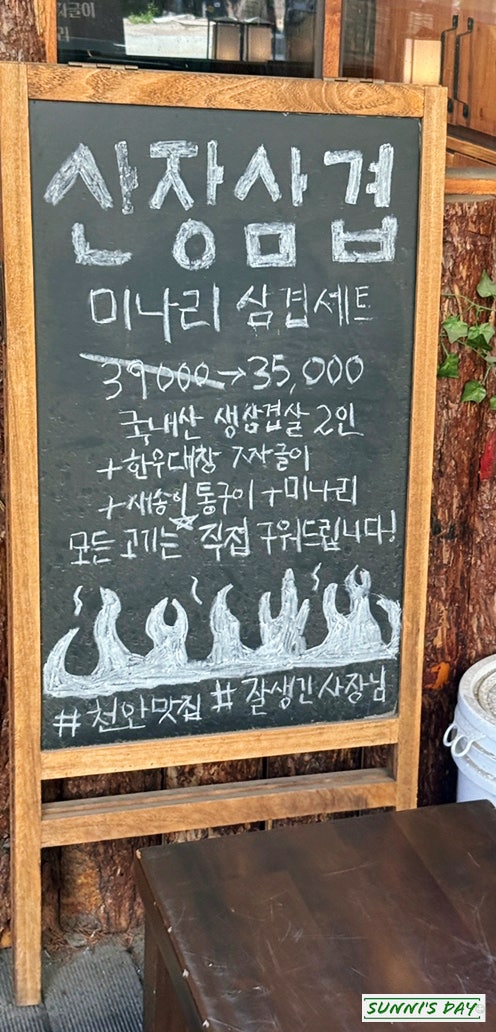 산장삼겹
미나리 삼겹세트
39000→35,000
국내산 생삼겹살 2인
+한우대창 자글이
+새송이통구이+미나리
모든 고기는 직접 구워드립니다!
#천안맛집 #잘생긴사장님
SUNNI'S DAY